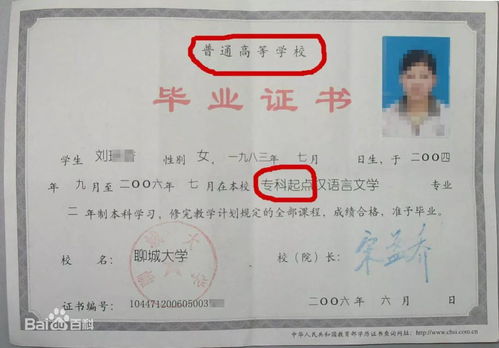 普通高等学校
毕业证书
学生 刘 性别 女，一九八三年 七月 日生，于二〇〇四
年 九月至二〇〇六年 七月在本校 专科起点汉语言文学 专业
二年制本科学习，修完教学计划规定的全部课程，成绩合格，准予毕业。
校 名：聊城大学 校（院）长：宋益乔
证书编号：104471200605003 二〇〇六年 六月 日
Baidu百科 中华人民共和国教育部学历证书查询网址：http://www.chsi.com.cn